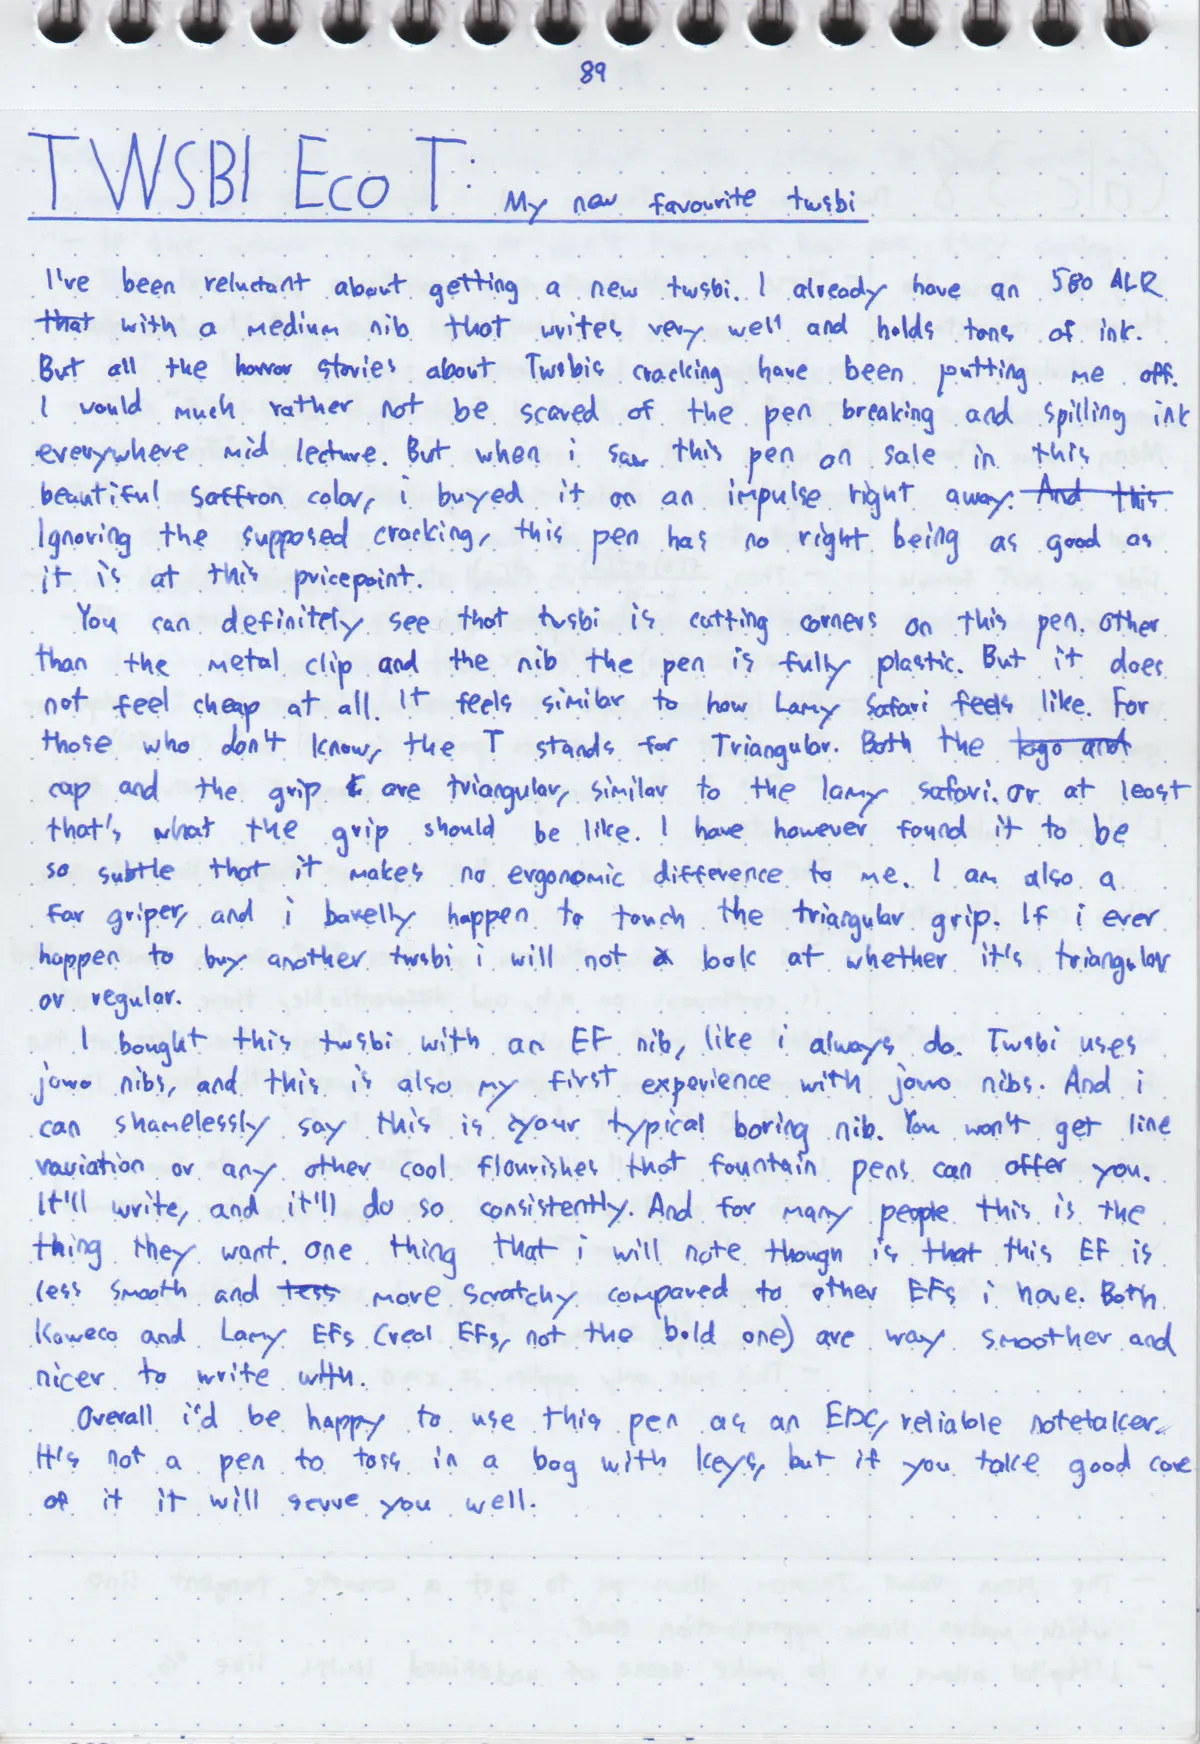 89
TWSBI Eco T: My new favourite twsbi
I've been reluctant about getting a new twsbi. I already have an 580 ALR
that with a medium nib that writes very well and holds tons of ink.
But all the horror stories about Twsbis cracking have been putting me off.
I would much rather not be scared of the pen breaking and spilling ink
everywhere mid lecture. But when i saw this pen on sale in this
beautiful saffron color, i buyed it on an impulse right away. And this
Ignoring the supposed cracking, this pen has no right being as good as
it is at this pricepoint.
You can definitely see that twsbi is cutting corners on this pen. Other
than the metal clip and the nib the pen is fully plastic. But it does
not feel cheap at all. It feels similar to how Lamy Safari feels like. For
those who don't know, the T stands for Triangular. Both the logo and
cap and the grip are triangular, similar to the lamy safari. Or at least
that's what the grip should be like. I have however found it to be
so subtle that it makes no ergonomic difference to me. I am also a
far griper, and i barelly happen to touch the triangular grip. If i ever
happen to buy another twsbi i will not look at whether it's triangular
or regular.
I bought this twsbi with an EF nib, like i always do. Twsbi uses
jowo nibs, and this is also my first experience with jowo nibs. And i
can shamelessly say this is your typical boring nib. You won't get line
variation or any other cool flourishes that fountain pens can offer you.
It'll write, and it'll do so consistently. And for many people this is the
thing they want. One thing that i will note though is that this EF is
less smooth and less more scratchy compared to other EFs i have. Both
Kaweco and Lamy EFs (real EFs, not the bold one) are way smoother and
nicer to write with.
Overall i'd be happy to use this pen as an EDC, reliable notetaker.
It's not a pen to toss in a bag with keys, but if you take good care
of it it will serve you well.